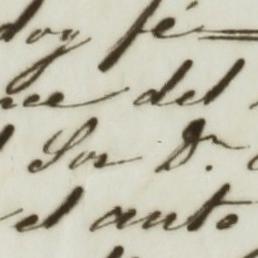 doy fé
ce del
Sor Dn.
el auto